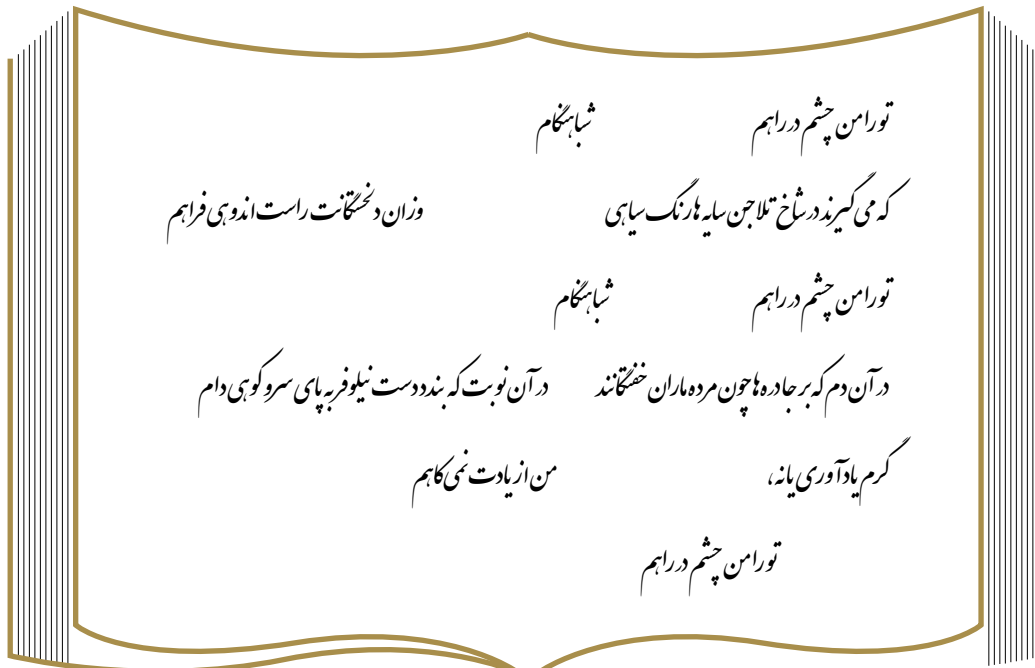 تو را من چشم در راهم شباهنگام
که می گیرند در شاخ تلاجن سایه ها رنگ سیاهی وزان دلخستگانت راست اندوهی فراهم
تو را من چشم در راهم شباهنگام
در آن دم که بر جا دره ها چون مرده ماران خفتگانند در آن نوبت که بندد دست نیلوفر به پای سرو کوهی دام
گرم یادآوری یا نه، من از یادت نمی کاهم
تو را من چشم در راهم